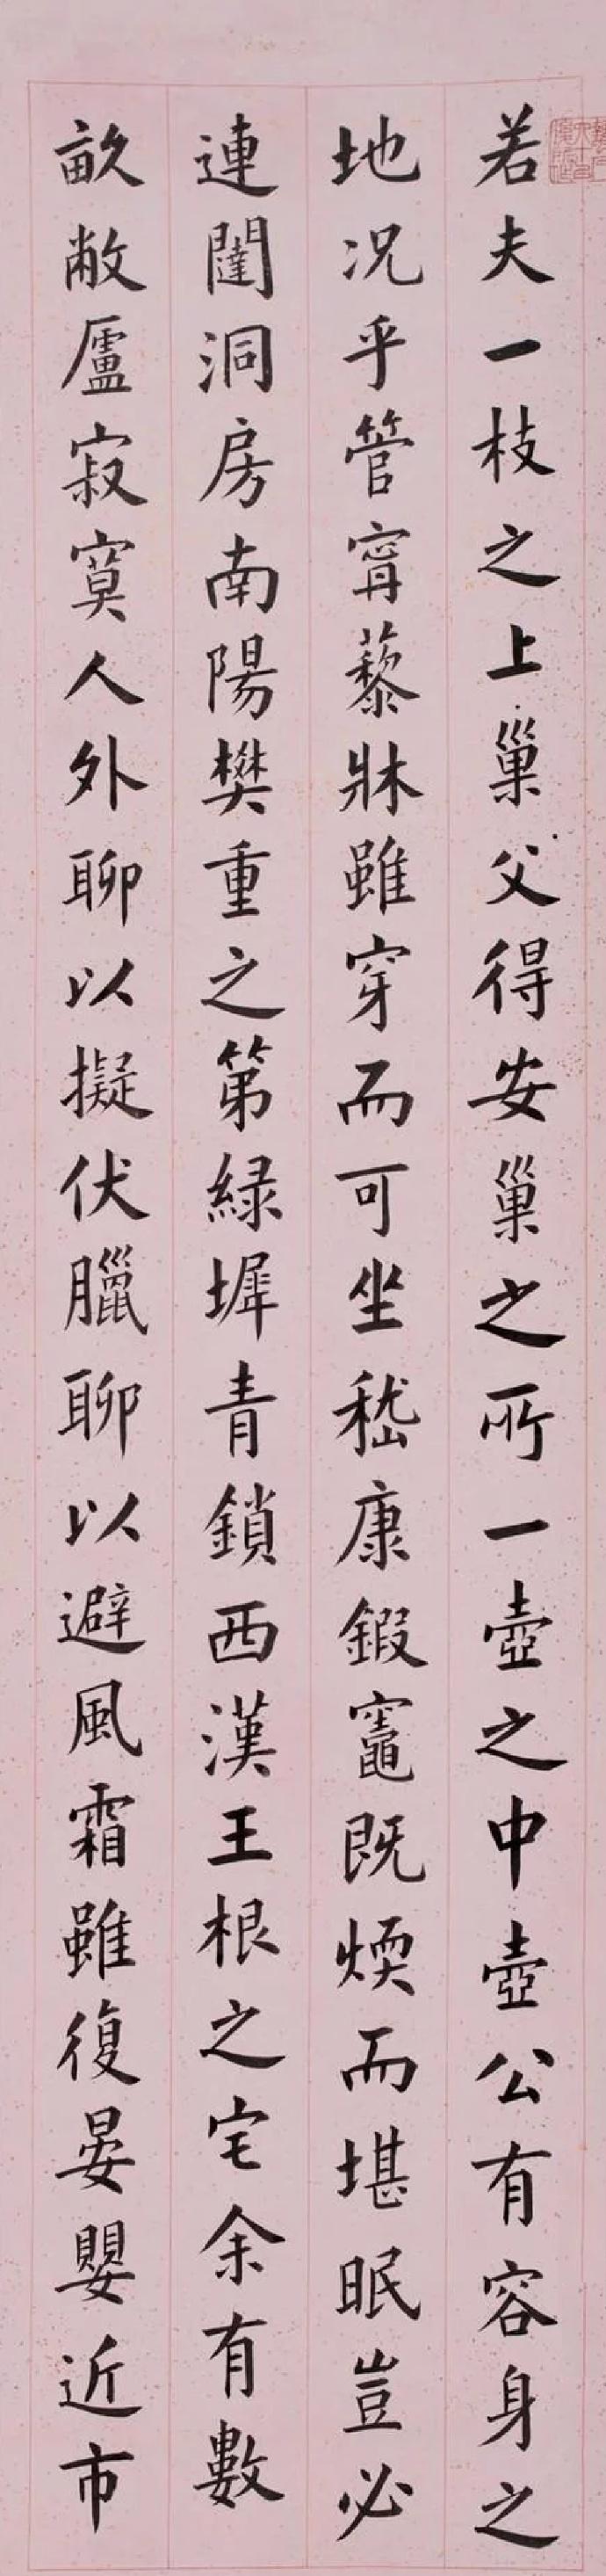 若夫一枝之上巢父得安巢之所一壺之中壺公有容身之
地况乎管寗藜牀雖穿而可坐嵇康鍛竈既煗而堪眠豈必
連闥洞房南陽樊重之第緑墀青鎖西漢王根之宅余有數
畝敝廬寂寞人外聊以擬伏臘聊以避風霜雖復晏嬰近市